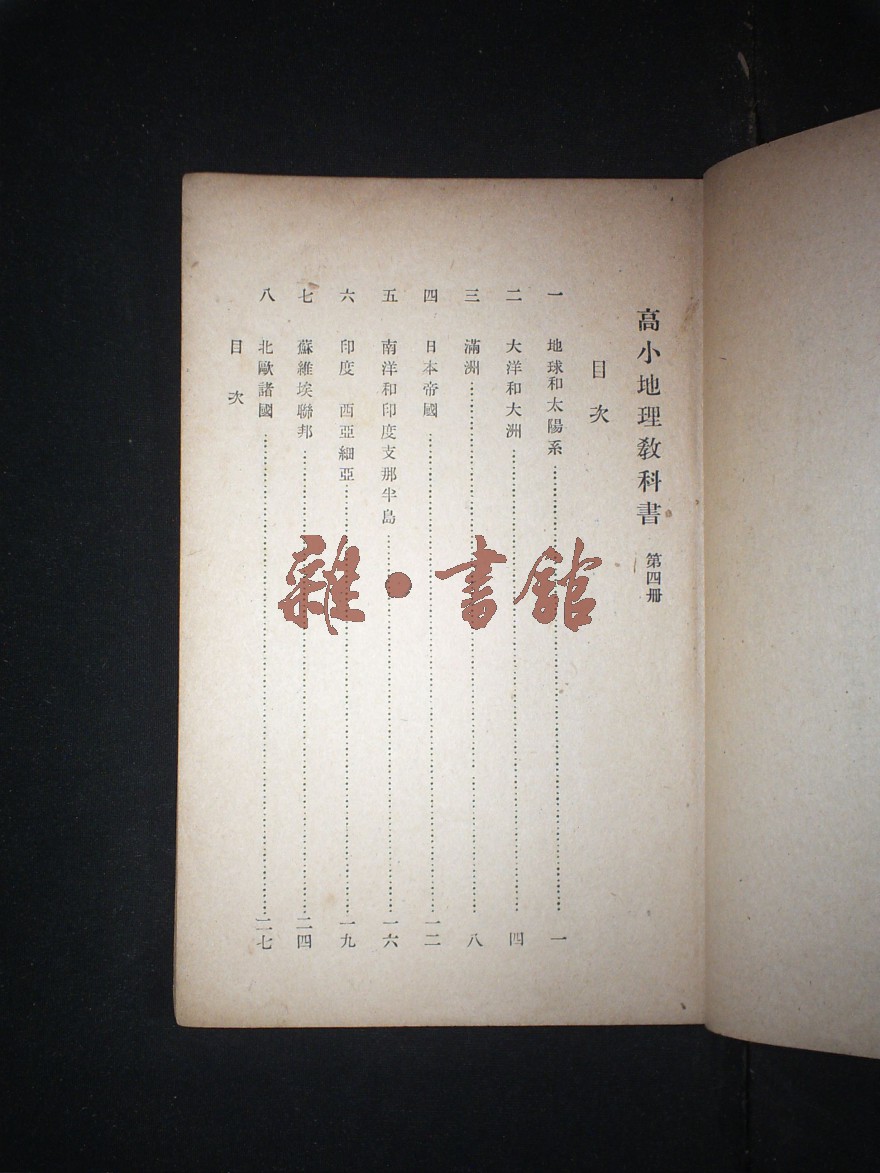 高小地理教科書 第四册
目次
一 地球和太陽系 一
二 大洋和大洲 四
三 滿洲 八
四 日本帝國 一二
五 南洋和印度支那半島 一六
六 印度 西亞細亞 一九
七 蘇維埃聯邦 二四
八 北歐諸國 二七
目次
雜·書館